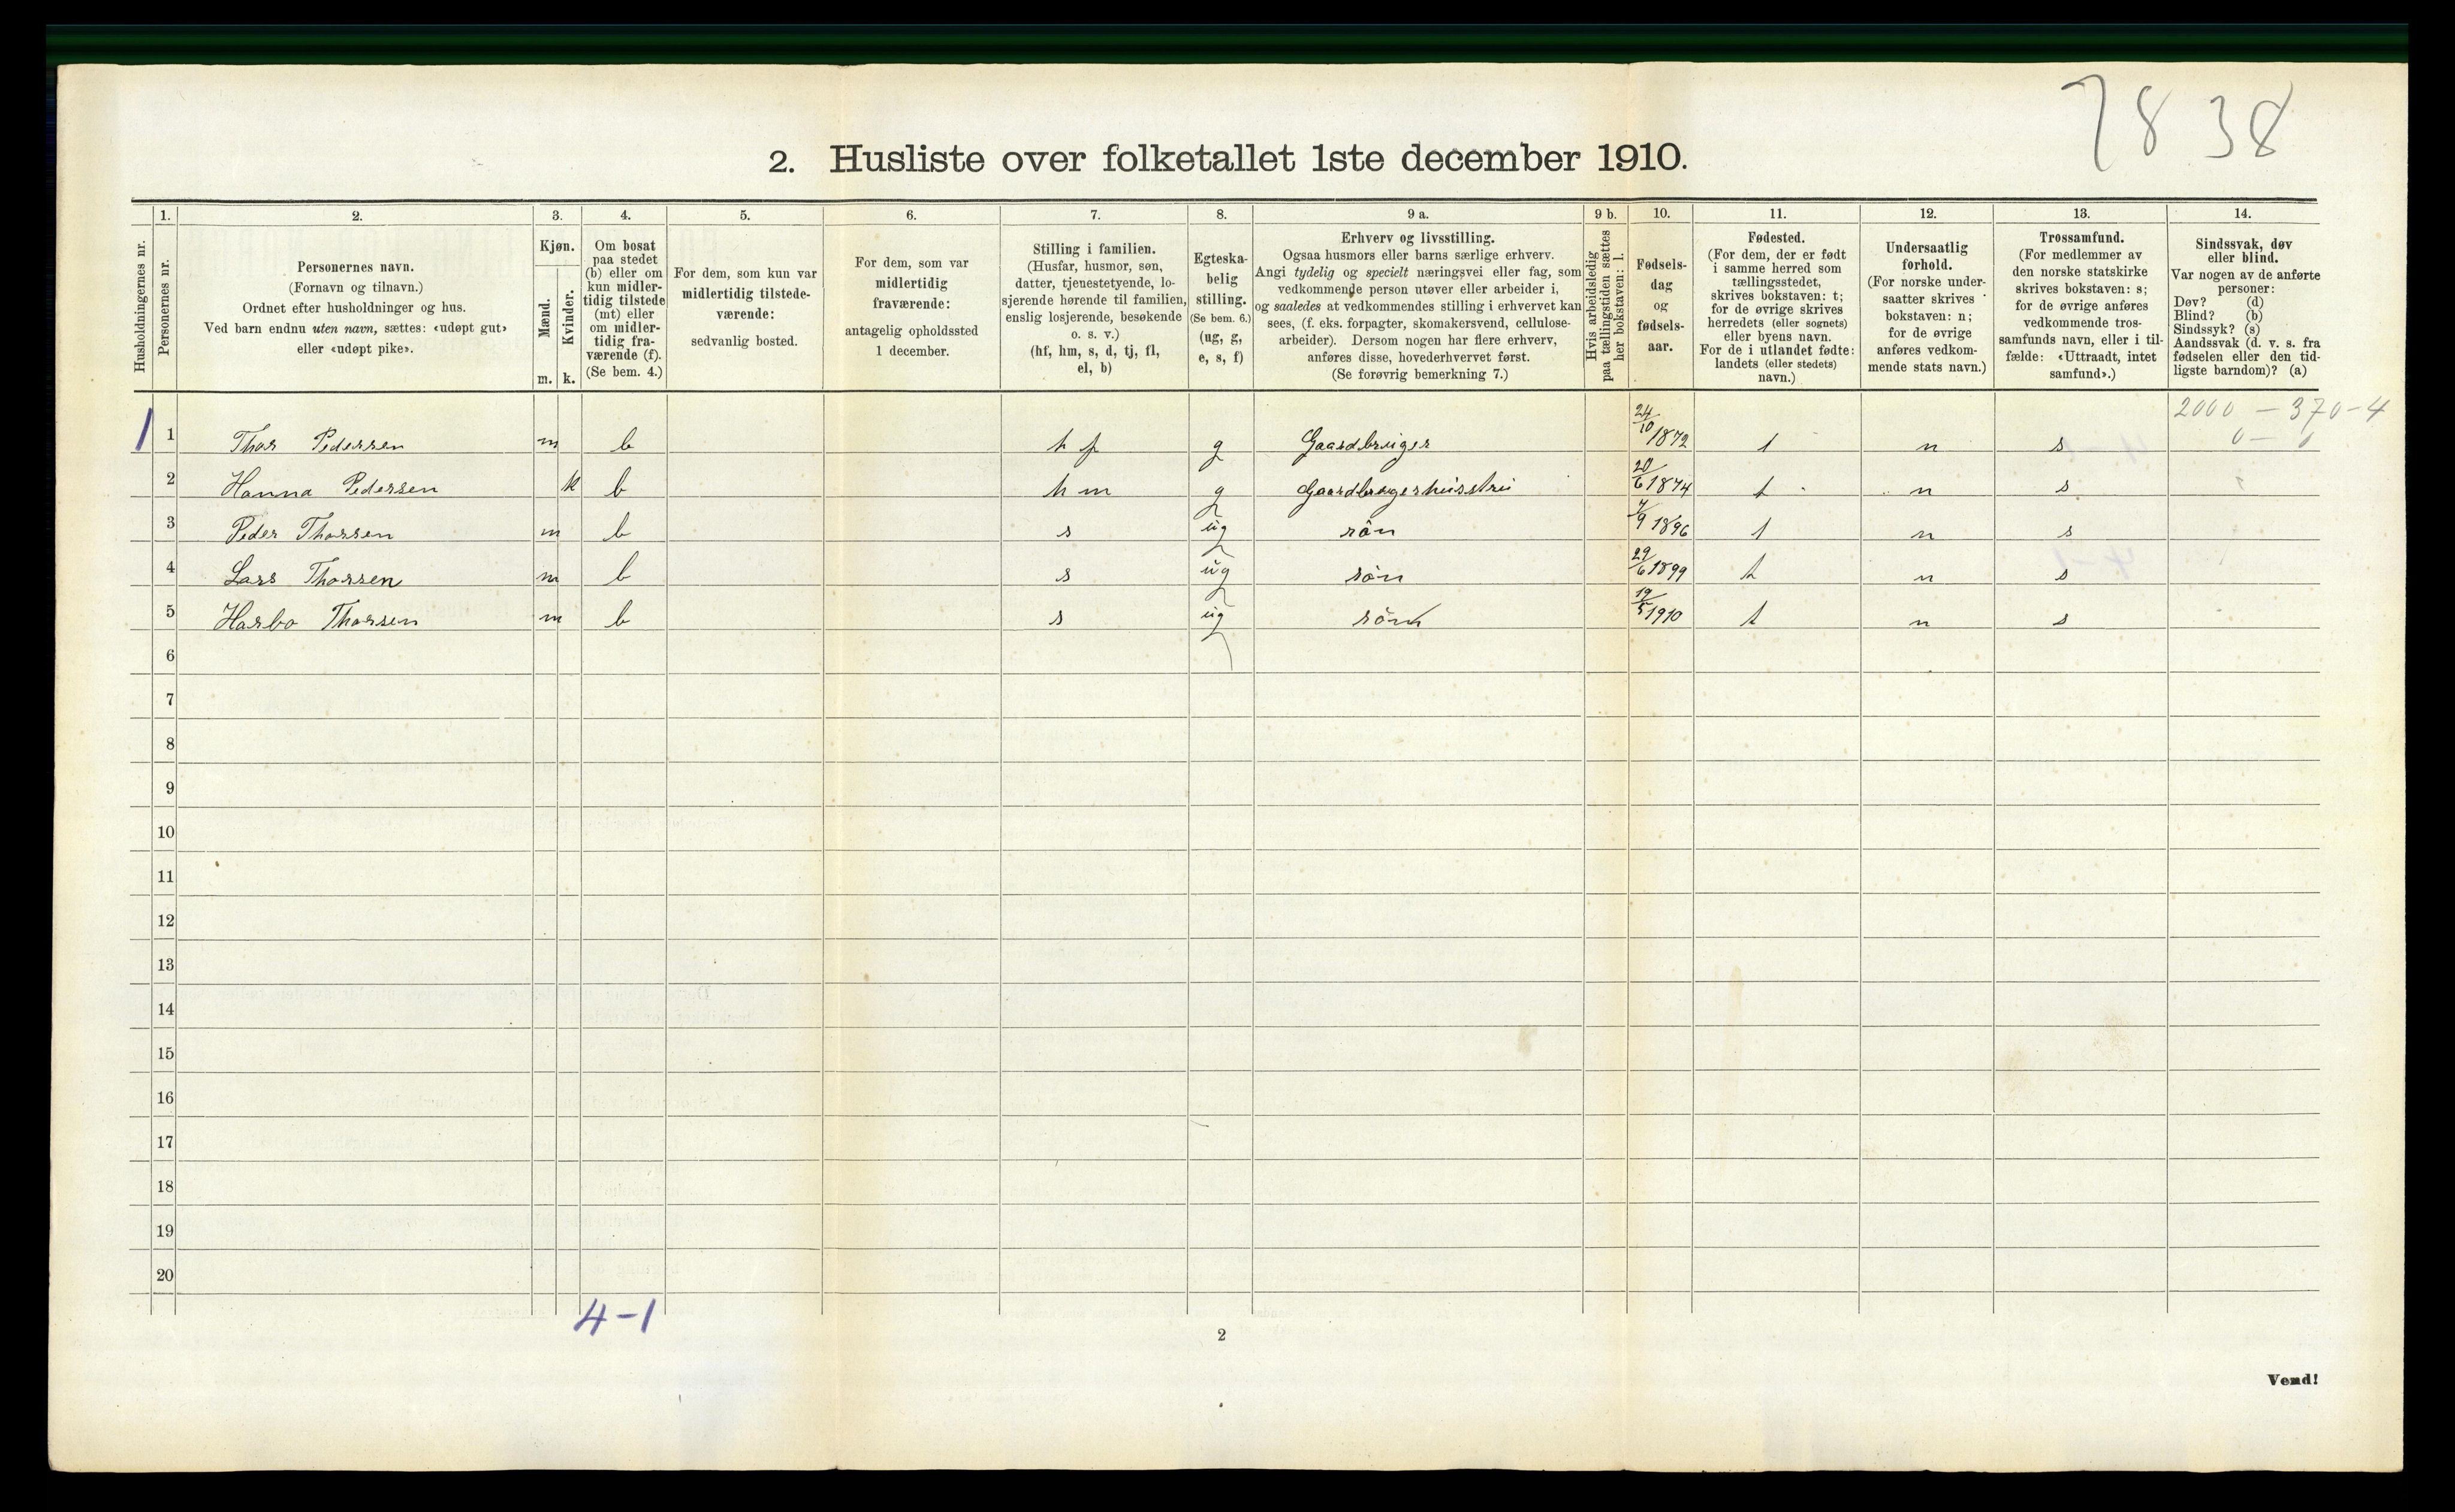 7838
2. Husliste over folketallet 1ste december 1910.
1. 2. 3. 4. 5. 6. 7. 8. 9 a. 9 b. 10. 11. 12. 13. 14.
Husholdningernes nr.
Personernes nr.
Personernes navn.
(Fornavn og tilnavn.)
Ordnet efter husholdninger og hus.
Ved barn endnu uten navn, sættes: «udøpt gut»
eller «udøpt pike».
Kjøn.
Mænd.
Kvinder.
m. k.
Om bosat
paa stedet
(b) eller om
kun midler-
tidig tilstede
(mt) eller
om midler-
tidig fra-
værende (f).
(Se bem. 4.)
For dem, som kun var
midlertidig tilstede-
værende:
sedvanlig bosted.
For dem, som var
midlertidig
fraværende:
antagelig opholdssted
1 december.
Stilling i familien.
(Husfar, husmor, søn,
datter, tjenestetyende, lo-
sjerende hørende til familien,
enslig losjerende, besøkende
o. s. v.)
(hf, hm, s, d, tj, fl,
el, b)
Egteska-
belig
stilling.
(Se bem. 6.)
(ug, g,
e, s, f)
Erhverv og livsstilling.
Ogsaa husmors eller barns særlige erhverv.
Angi tydelig og specielt næringsvei eller fag, som
vedkommende person utøver eller arbeider i,
og saaledes at vedkommendes stilling i erhvervet kan
sees, (f. eks. forpagter, skomakersvend, cellulose-
arbeider). Dersom nogen har flere erhverv,
anføres disse, hovederhvervet først.
(Se forøvrig bemerkning 7.)
Hvis arbeidsledig
paa tællingstiden sættes
her bokstaven: l.
Fødsels-
dag
og
fødsels-
aar.
Fødested.
(For dem, der er født
i samme herred som
tællingsstedet,
skrives bokstaven: t;
for de øvrige skrives
herredets (eller sognets)
eller byens navn.
For de i utlandet fødte:
landets (eller stedets)
navn.)
Undersaatlig
forhold.
(For norske under-
saatter skrives
bokstaven: n;
for de øvrige
anføres vedkom-
mende stats navn.)
Trossamfund.
(For medlemmer av
den norske statskirke
skrives bokstaven: s;
for de øvrige anføres
vedkommende tros-
samfunds navn, eller i til-
fælde: «Uttraadt, intet
samfund».)
Sindssvak, døv
eller blind.
Var nogen av de anførte
personer:
Døv? (d)
Blind? (b)
Sindssyk? (s)
Aandssvak (d. v. s. fra
fødselen eller den tid-
ligste barndom)? (a)
2000 - 370-4
0 - 0
1 1 Thor Pedersen m b hf g Gaardbruger 24/10 1872 t n s
2 Hanna Pedersen k b hm g Gaardbrugerhustru 20/6 1874 t n s
3 Peder Thorsen m b s ug søn 7/9 1896 t n s
4 Lars Thorsen m b s ug søn 29/6 1899 t n s
5 Harbo Thorsen m b s ug søn 19/5 1910 t n s
6
7
8
9
10
11
12
13
14
15
16
17
18
19
20
4-1
2
Vend!